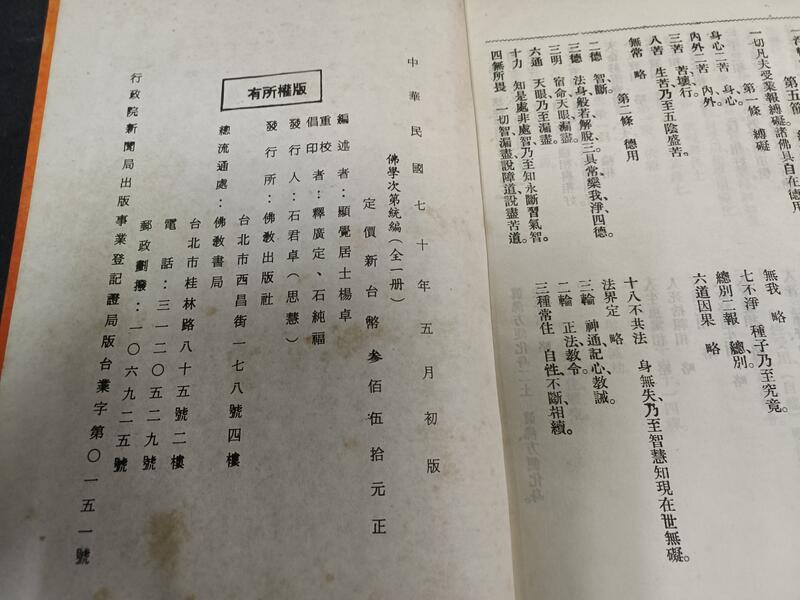 一切凡夫受業報縛礙諸佛具自在德用
第一條　縛礙
身心二苦　身、心。
內外二苦　內、外。
三苦　苦、壞、行。
八苦　生苦乃至五陰盛苦。
無常　略
第二條　德用
二德　智、斷。
三德　法身、般若、解脫、三具常、樂、我、淨、四德。
三明　宿命、天眼、漏盡。
六通　天眼乃至漏盡。
十力　知是處非處智、乃至知永斷習氣智。
四無所畏　一切智、漏盡、說障道、說盡苦道。
無我　略
七不淨　種子乃至究竟。
總別二報　總、別。
六道因果　略
十八不共法　身無失、乃至智慧知現在世無礙。
法界定　略
三輪　神通、記心、教誡。
二輪　正法、教令。
三種常住　自性、不斷、相續。
中華民國七十年五月初版
佛學次第統編（全一册）
定價新台幣叁佰伍拾元正
版權所有
編述者：顯覺居士楊卓
重校倡印者：釋廣定、石純福
發行人：石君卓（思慧）
發行所：佛教出版社
台北市西昌街一七八號四樓
總流通處：佛教書局
台北市桂林路八十五號二樓
電話：三一二〇五二九號
郵政劃撥：一〇六九二五號
行政院新聞局出版事業登記證局版台業字第〇一五一號